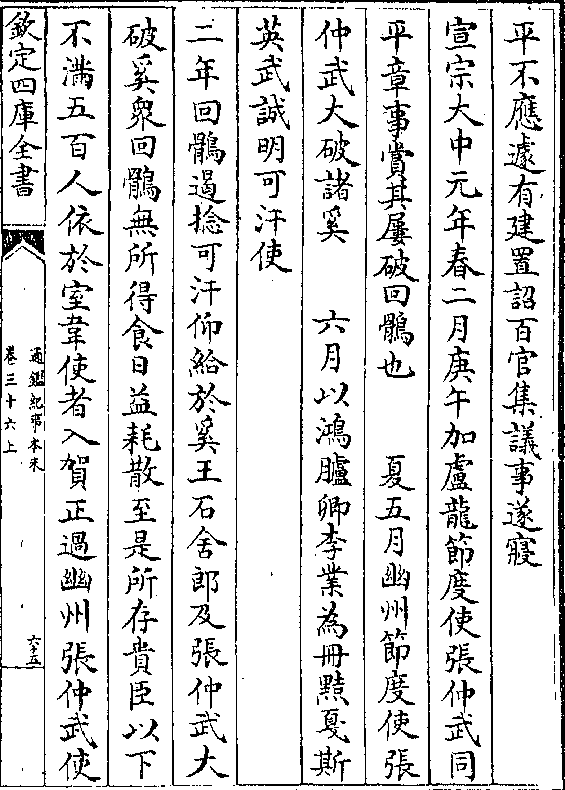 平不應遽有建置詔百官集議事遂寢
宣宗大中元年春二月庚午加盧龍節度使張仲武同
平章事賞其屢破回鶻也　夏五月幽州節度使張
仲武大破諸奚　六月以鴻臚卿李業為冊黠戛斯
英武誠明可汗使
二年回鶻遏捻可汗仰給於奚王石舍郎及張仲武大
破奚衆回鶻無所得食日益耗散至是所存貴臣以下
不滿五百人依於室韋使者入賀正過幽州張仲武使
欽定四庫全書
通鑑紀事本末
卷三十六上
六十五